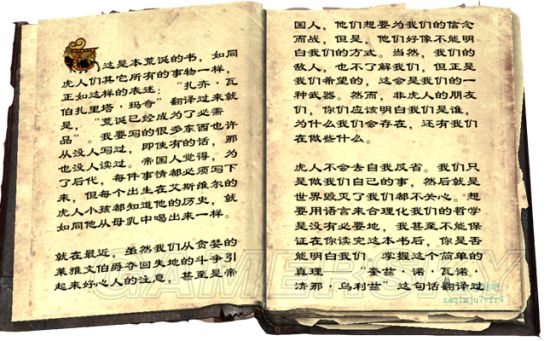 这是本荒诞的书，如同
虎人们其它所有的事物一样，
正如这样的表述：“扎齐·瓦
伯扎里塔·玛奇”翻译过来就
是，“荒诞已经成为了必需
品”。我要写的很多东西也许
从没人写过，即使有的话，那
也没人读过。帝国人觉得，为
了后代，每件事情都必须写下
来，但每个出生在艾斯维尔的
虎人小孩都知道他的历史，就
如同他从母乳中喝出来一样。
就在最近，虽然我们从贪婪的
莱雅文伯爵夺回失地的斗争引
起来好心人的注意，甚至是帝
国人，他们想要为我们的信念
而战，但是，他们好像不能明
白我们的方式。当然，我们的
敌人，也不了解我们，但正是
我们希望的，这会是我们的一
种武器。然而，非虎人的朋友
们，你们应该明白我们是谁，
为什么我们会存在，还有我们
在做些什么。
虎人不会去自我反省。我们只
是做我们自己的事，然后就是
世界毁灭了我们都不关心。想
要用语言来合理化我们的哲学
是没有必要地，我甚至不能保
证在你读完这本书后，你是否
能明白我们，掌握这个简单的
真理，“奎兹·诺·瓦诺·
清那·乌利兹”这句话翻译过
GAMERSKY
zaqimju7vfr4